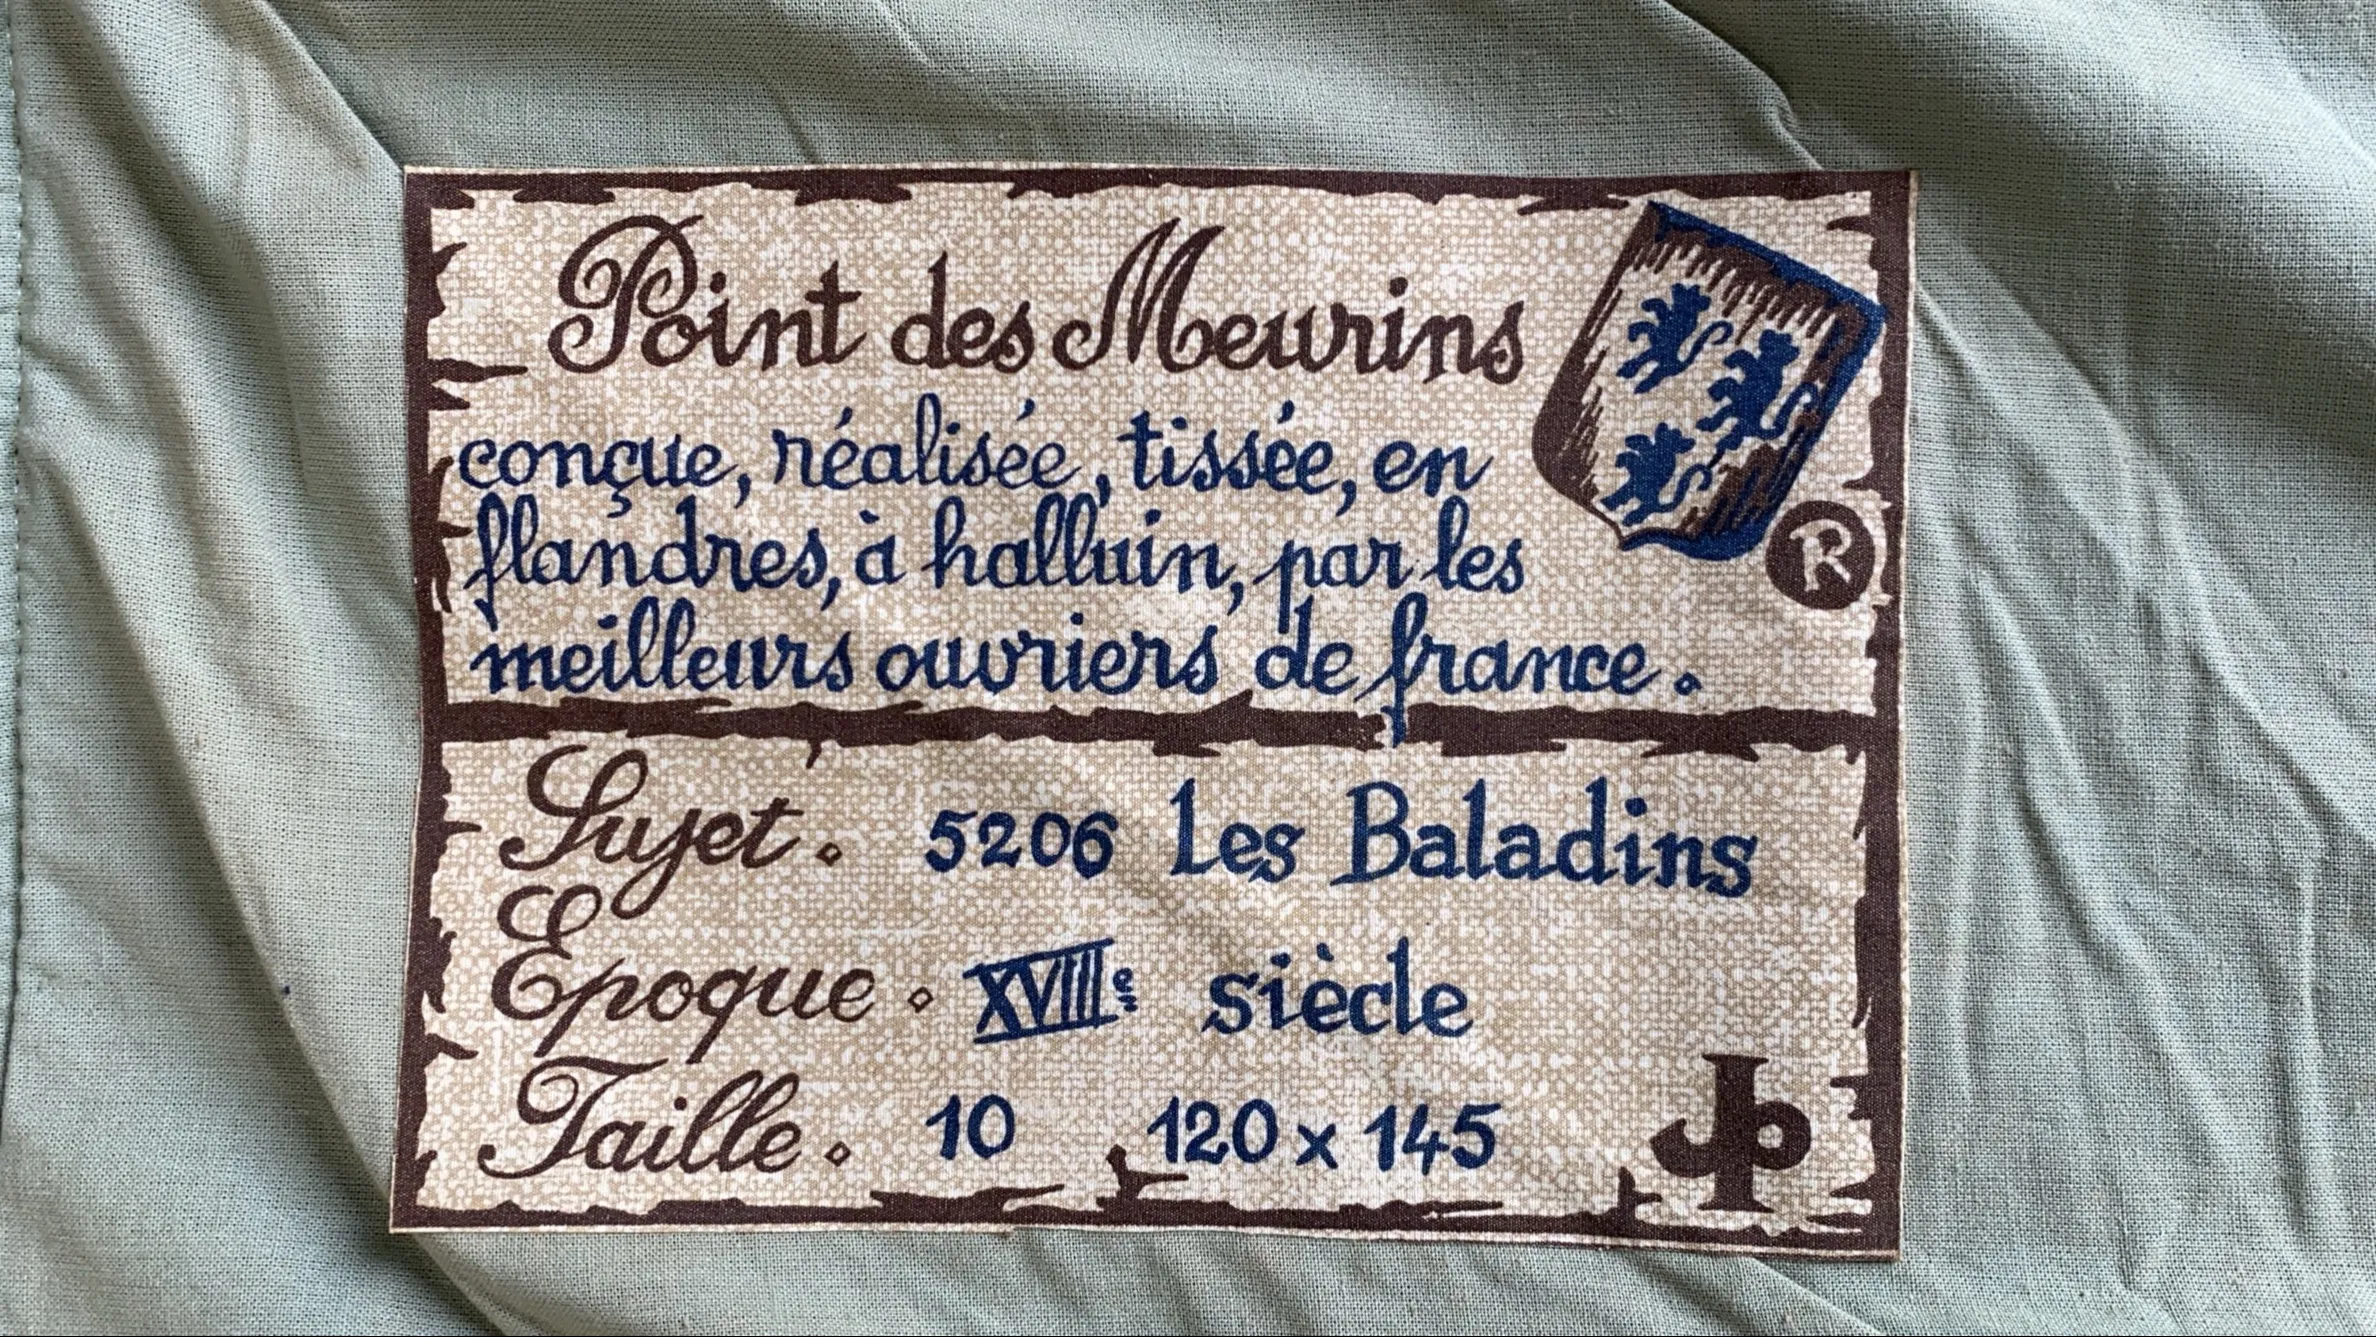 Point des Meurins
conçue, réalisée, tissée, en
flandres, à halluin, par les
meilleurs ouvriers de france.
®
Sujet. 5206 Les Baladins
Epoque. XVIIIe siècle
Taille. 10 120 x 145
JP